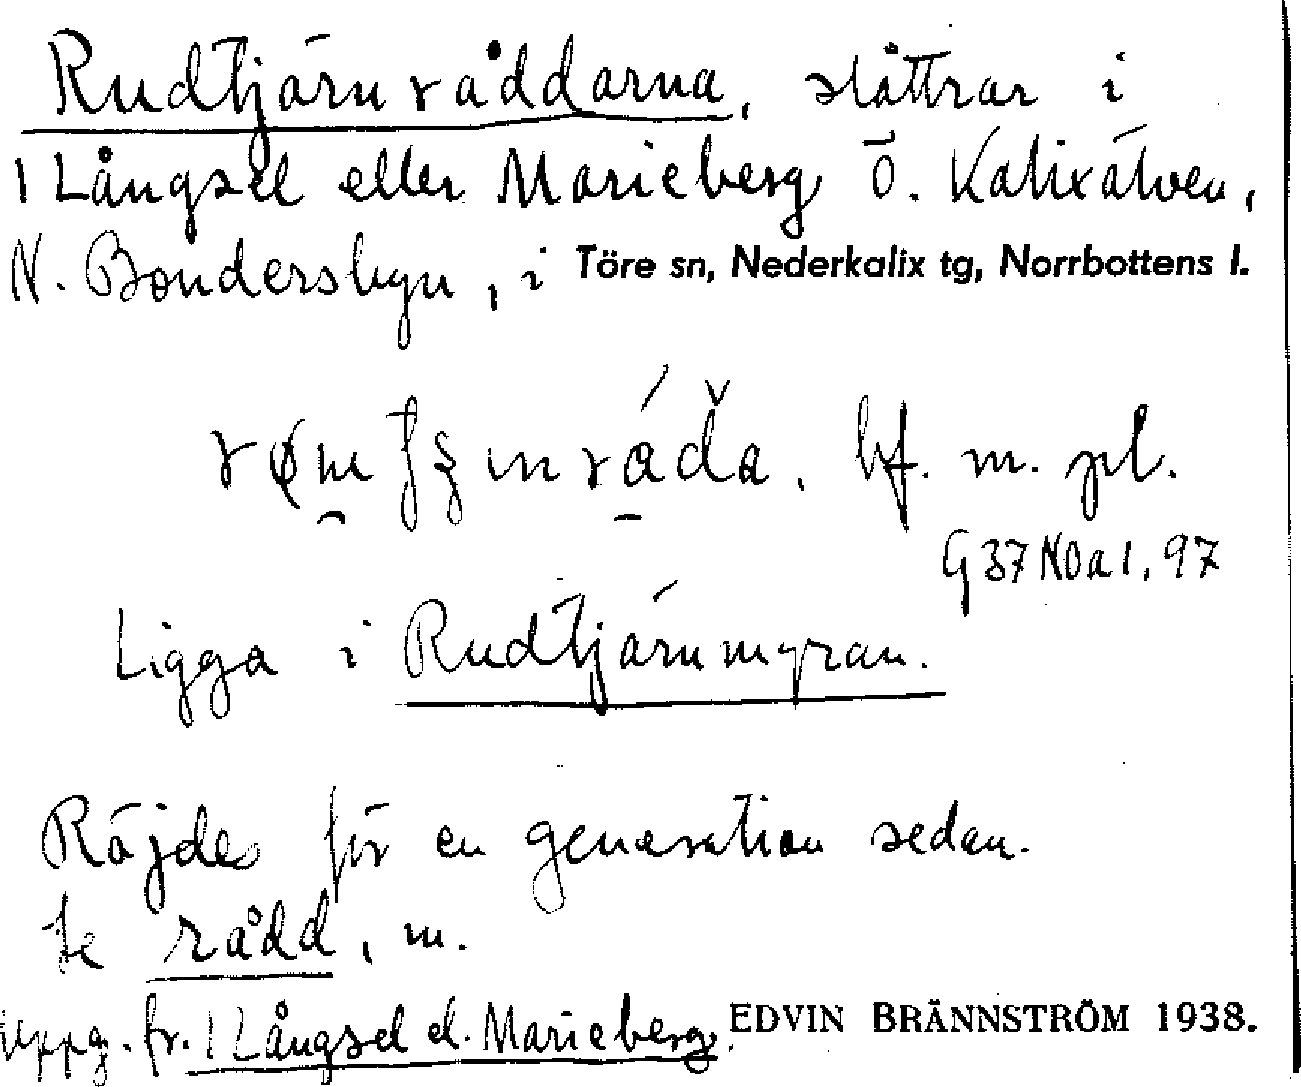 Rudtjärnråddarna, slåttrar i
1 Långsel eller Marieberg Ö. Kalixälven,
N. Bondersbyn, i Töre sn, Nederkalix tg, Norrbottens l.
bf. m. pl.
G 37 NDa 1, 97
Ligga i Rudtjärnmyran.
Röjdes för en generation sedan.
Se rådd, m.
Uppg. fr. 1 Långsel el. Marieberg. EDVIN BRÄNNSTRÖM 1938.